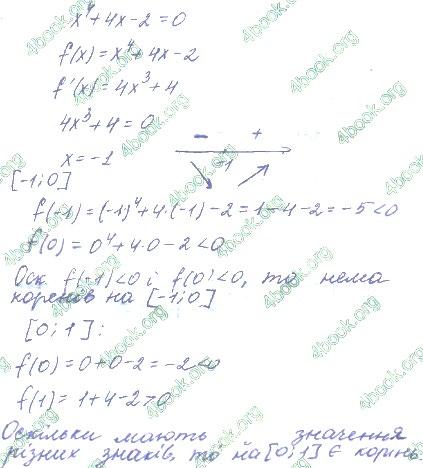 x⁴+4x-2=0
f(x)=x⁴+4x-2
f'(x)=4x³+4
4x³+4=0
- +
x=-1
-1
[-1;0]
f(-1)=(-1)⁴+4·(-1)-2=1-4-2=-5<0
f(0)=0⁴+4·0-2<0
Оск. f(-1)<0 і f(0)<0, то нема
коренів на [-1;0]
[0;1]:
f(0)=0+0-2=-2<0
f(1)=1+4-2>0
Оскільки мають значення
різних знаків, то на [0;1] Є корінь
4book.org